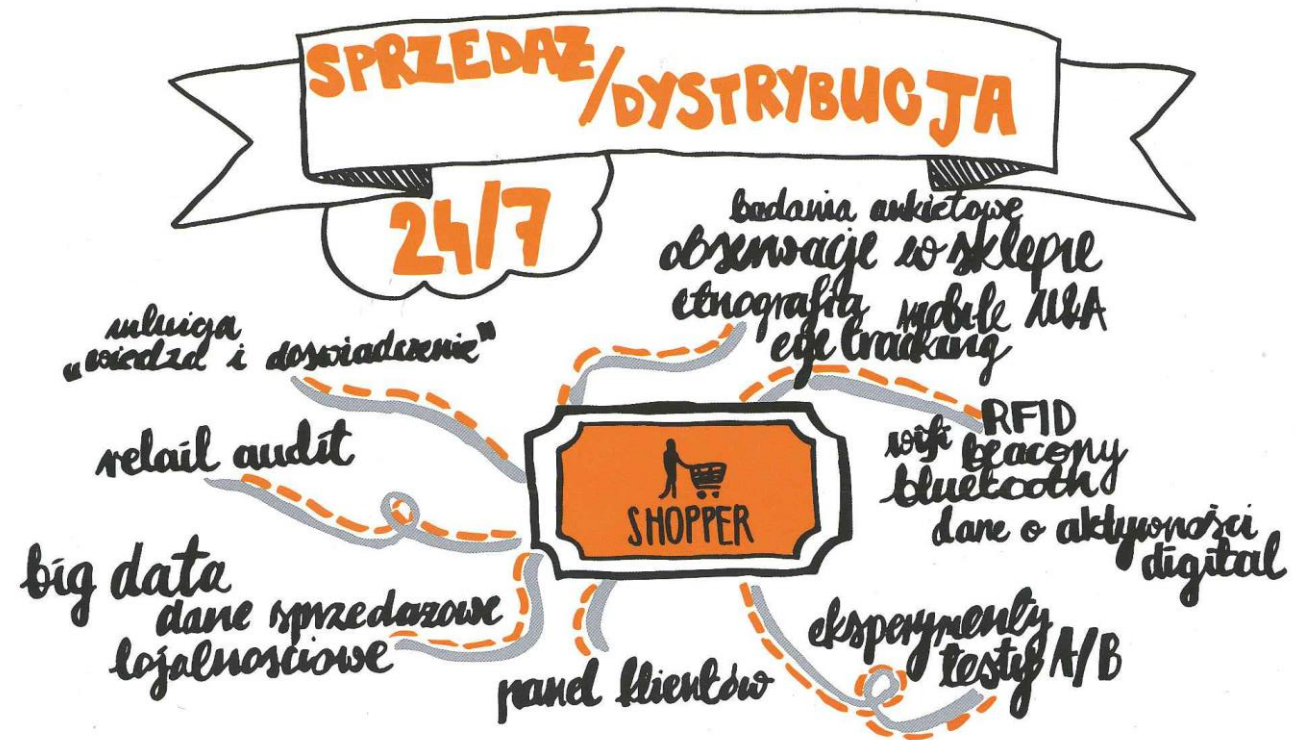 SPRZEDAŻ/DYSTRYBUCJA
24/7
badania ankietowe
obserwacje w sklepie
etnografia mobile U&A
eye tracking
intuicja
„wiedza i doświadczenie"
RFID
wifi beacony
bluetooth
dane o aktywności
digital
retail audit
SHOPPER
big data
dane sprzedażowe
lojalnościowe
panel klientów
eksperymenty
testy A/B